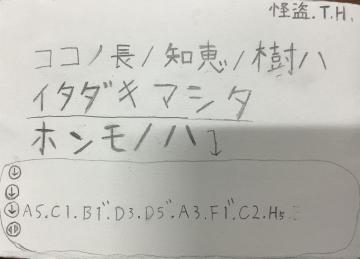 怪盗.T.H.
ココノ長ノ知恵ノ樹ハ
イタダキマシタ
ホンモノハ↓
↓
↓
↓ A5.C1.B1".D3.D5".A3.F1".C2.H5.E